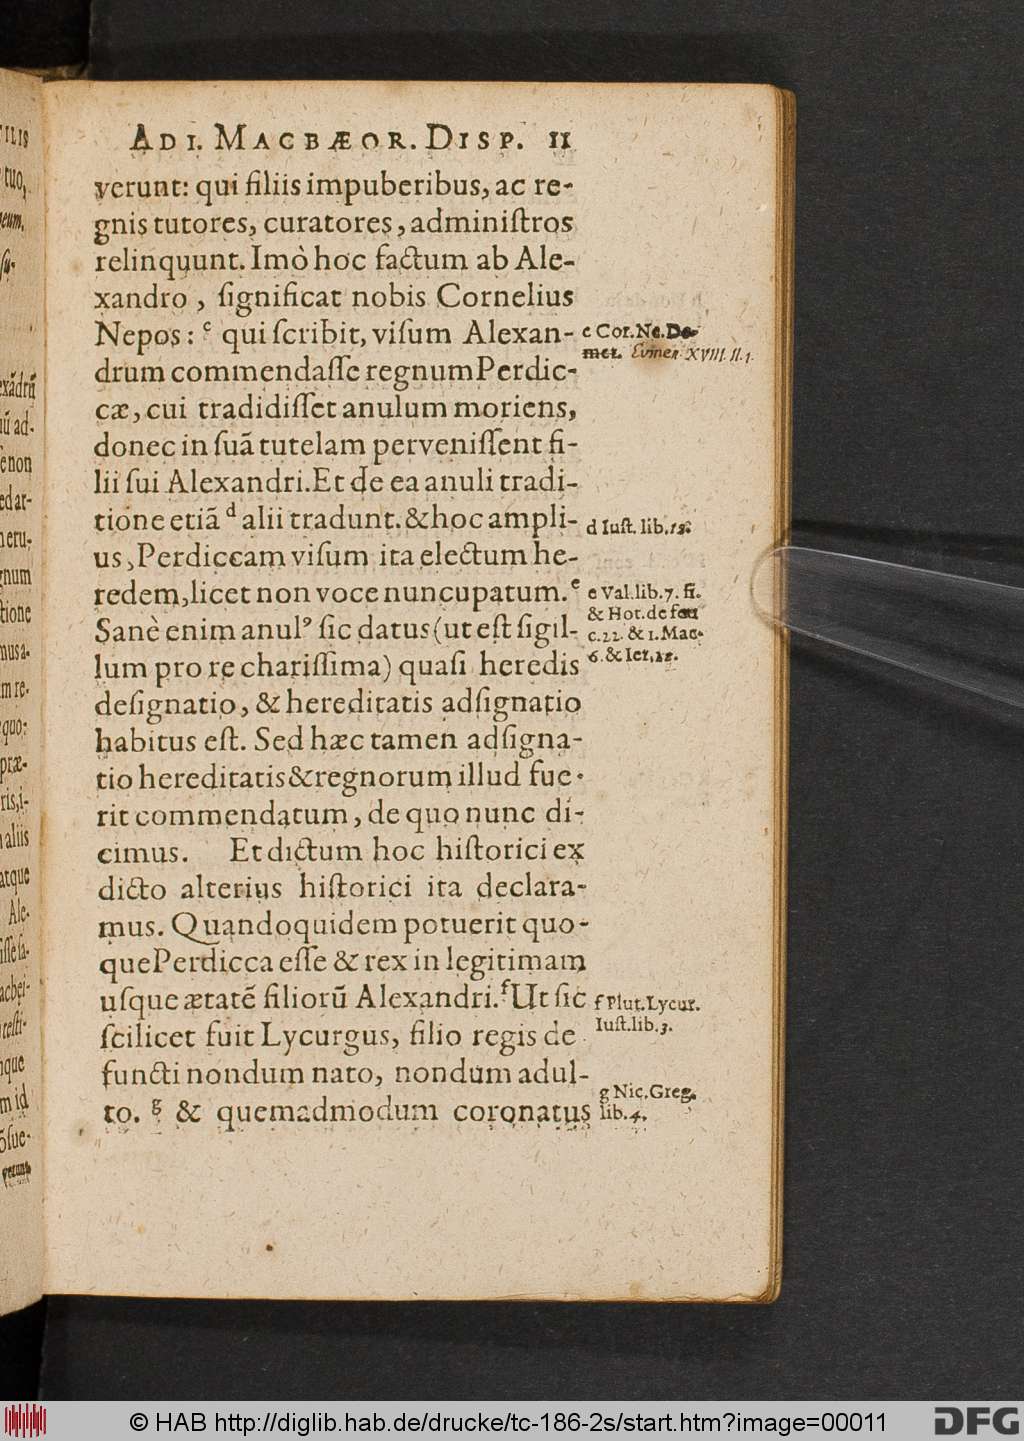 AD I. MACBÆOR. DISP. 11
verunt: qui filiis impuberibus, ac re-
gnis tutores, curatores, adminiſtros
relinquunt. Imò hoc factum ab Ale-
xandro, ſignificat nobis Cornelius
Nepos: c qui ſcribit, viſum Alexan-
drum commendaſſe regnum Perdic-
cæ, cui tradidiſſet anulum moriens,
donec in ſuã tutelam perveniſſent fi-
lii ſui Alexandri. Et de ea anuli tradi-
tione etiã d alii tradunt. & hoc ampli-
us, Perdiccam viſum ita electum he-
redem, licet non voce nuncupatum. e
Sanè enim anulꝰ ſic datus (ut eſt ſigil-
lum pro re chariſſima) quaſi heredis
deſignatio, & hereditatis adſignatio
habitus eſt. Sed hæc tamen adſigna-
tio hereditatis & regnorum illud fue-
rit commendatum, de quo nunc di-
cimus. Et dictum hoc hiſtorici ex
dicto alterius hiſtorici ita declara-
mus. Quandoquidem potuerit quo-
que Perdicca eſſe & rex in legitimam
uſque ætatẽ filiorũ Alexandri. f Ut ſic
ſcilicet fuit Lycurgus, filio regis de
functi nondum nato, nondum adul-
to. g & quemadmodum coronatus
c Cor. Ne. De
met. Eumen XVIII. II. 1.
d Iuſt. lib. 12.
e Val. lib. 7. fi.
& Hot. de feu
c. 22. & 1. Mac.
6. & Ier. 22.
f Plut. Lycur.
Iuſt. lib. 3.
g Nic. Greg.
lib. 4.
tuo,
eum,
exãdrũ
iũ ad-
ed ar-
gnum
tione
musa-
m re-
quo:
præ-
ris, i-
aliis
atque
Ale-
iſſe ſa-
acbei-
teſti-
que
m id
õſue-
verunt
© HAB http://diglib.hab.de/drucke/tc-186-2s/start.htm?image=00011
DFG